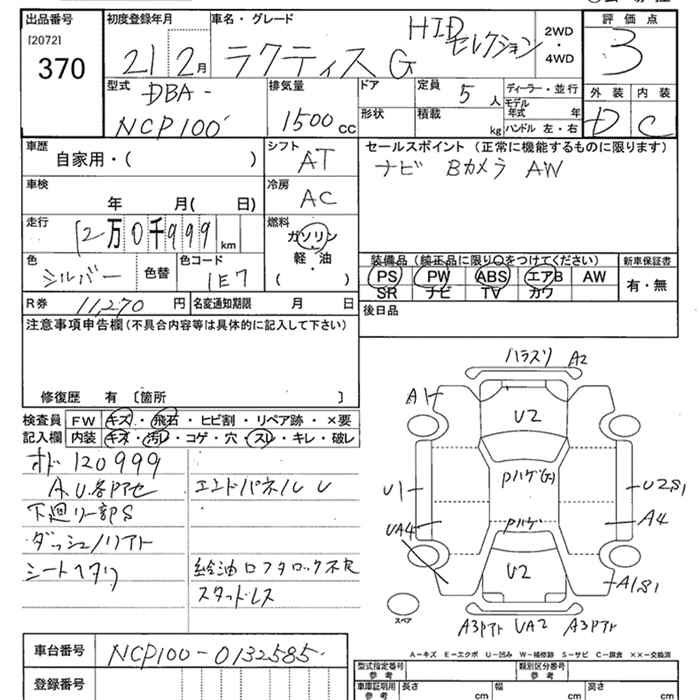 出品番号 初度登録年月 車名・グレード 2WD ・ 4WD 評価点
[2072]
370 21 2月 ラクティス G HID セレクション 3
型式 DBA- NCP100 排気量 1500 CC ドア 定員 5 人 ディーラー・並行 外装 内装
形状 積載 kg モデル年式 年 ハンドル 左・右 D C
車歴 自家用・( ) シフト AT セールスポイント (正常に機能するものに限ります)
ナビ Bカメラ AW
車検 年 月( 日) 冷房 AC
走行 12万0千999 km 燃料 ガソリン 軽・油 ( )
色 シルバー 色替 色コード 1E7
装備品 (純正品に限り○をつけてください) 新車保証書
PS PW ABS エアB AW 有・無
SR ナビ TV カワ
R券 11,270 円 名変通知期限 月 日 後日品
注意事項申告欄 (不具合内容等は具体的に記入して下さい)
修復歴 有 〔箇所 〕
検査員 FW キズ・飛石・ヒビ割・リペア跡・×要
記入欄 内装 キズ・汚レ・コゲ・穴・スレ・キレ・破レ
オド 120999
A.U.各Pアセ エンドパネルU
下廻リ一部S
ダッシュノリアト
シートヘタリ 給油口フタロック不良
スタッドレス
ハラスリ A2
A1
U2
PハゲG)
U1 U2S1
UA4 Pハゲ A4
U2
A1S1
スペア
A3Pアト UA2 A3Pアト
A-キズ E-エクボ U-凹み W-補修跡 S-サビ C-腐食 ××-交換済
車台番号 NCP100-0132585
登録番号
型式指定番号 参考 類別区分番号 参考
車庫証明用 参考 長さ cm 幅 cm 高さ cm